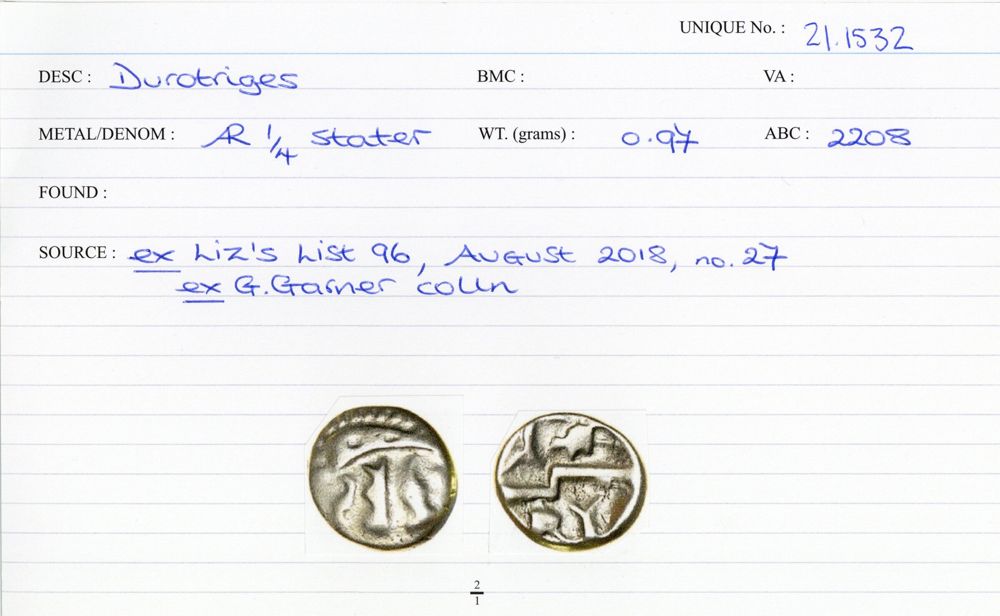 UNIQUE No. : 21.1532
DESC : Durotriges BMC : VA :
METAL/DENOM : AR 1/4 stater WT. (grams) : 0.97 ABC : 2208
FOUND :
SOURCE : ex Liz's List 96, August 2018, no. 27
ex G. Garner colln
2/1